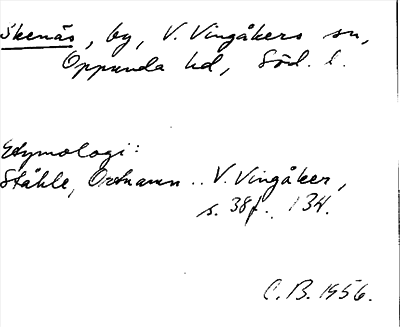 Skenäs, by, V. Vingåkers sn,
Oppunda hd, Söd. l.
Etymologi:
Ståhle, Ortnamn .. V. Vingåker,
s. 38f., 134.
C. B. 1956.